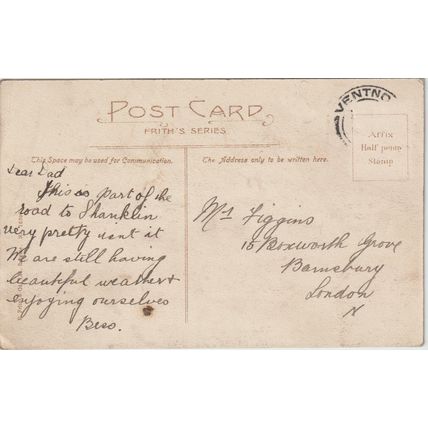 POST CARD
FRITH'S SERIES
VENTNO
Affix
Half penny
Stamp
This Space may be used for Communication.
The Address only to be written here.
Dear Dad
This is part of the
road to Shanklin
very pretty isnt it
We are still having
beautiful weather &
enjoying ourselves
Bess.
Mr Figgins
15 Boxworth Grove
Barnsbury
London
N